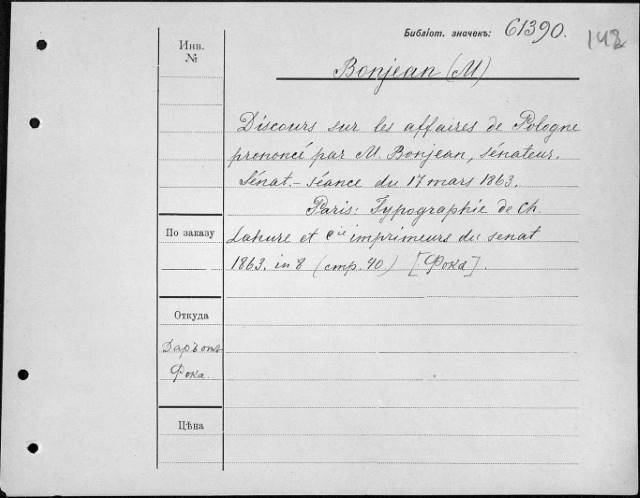 Библіот. значекъ: 61390. 142
Инв.
№
Bonjean (M)
Discours sur les affaires de Pologne
prononcé par M. Bonjean, sénateur.
Sénat. – séance du 17 mars 1863.
Paris: Typographie de Ch.
По заказу
Lahure et Cie imprimeurs du senat
1863. in 8 (стр. 40) [Фока].
Откуда
Даръ отъ
Фока.
Цѣна